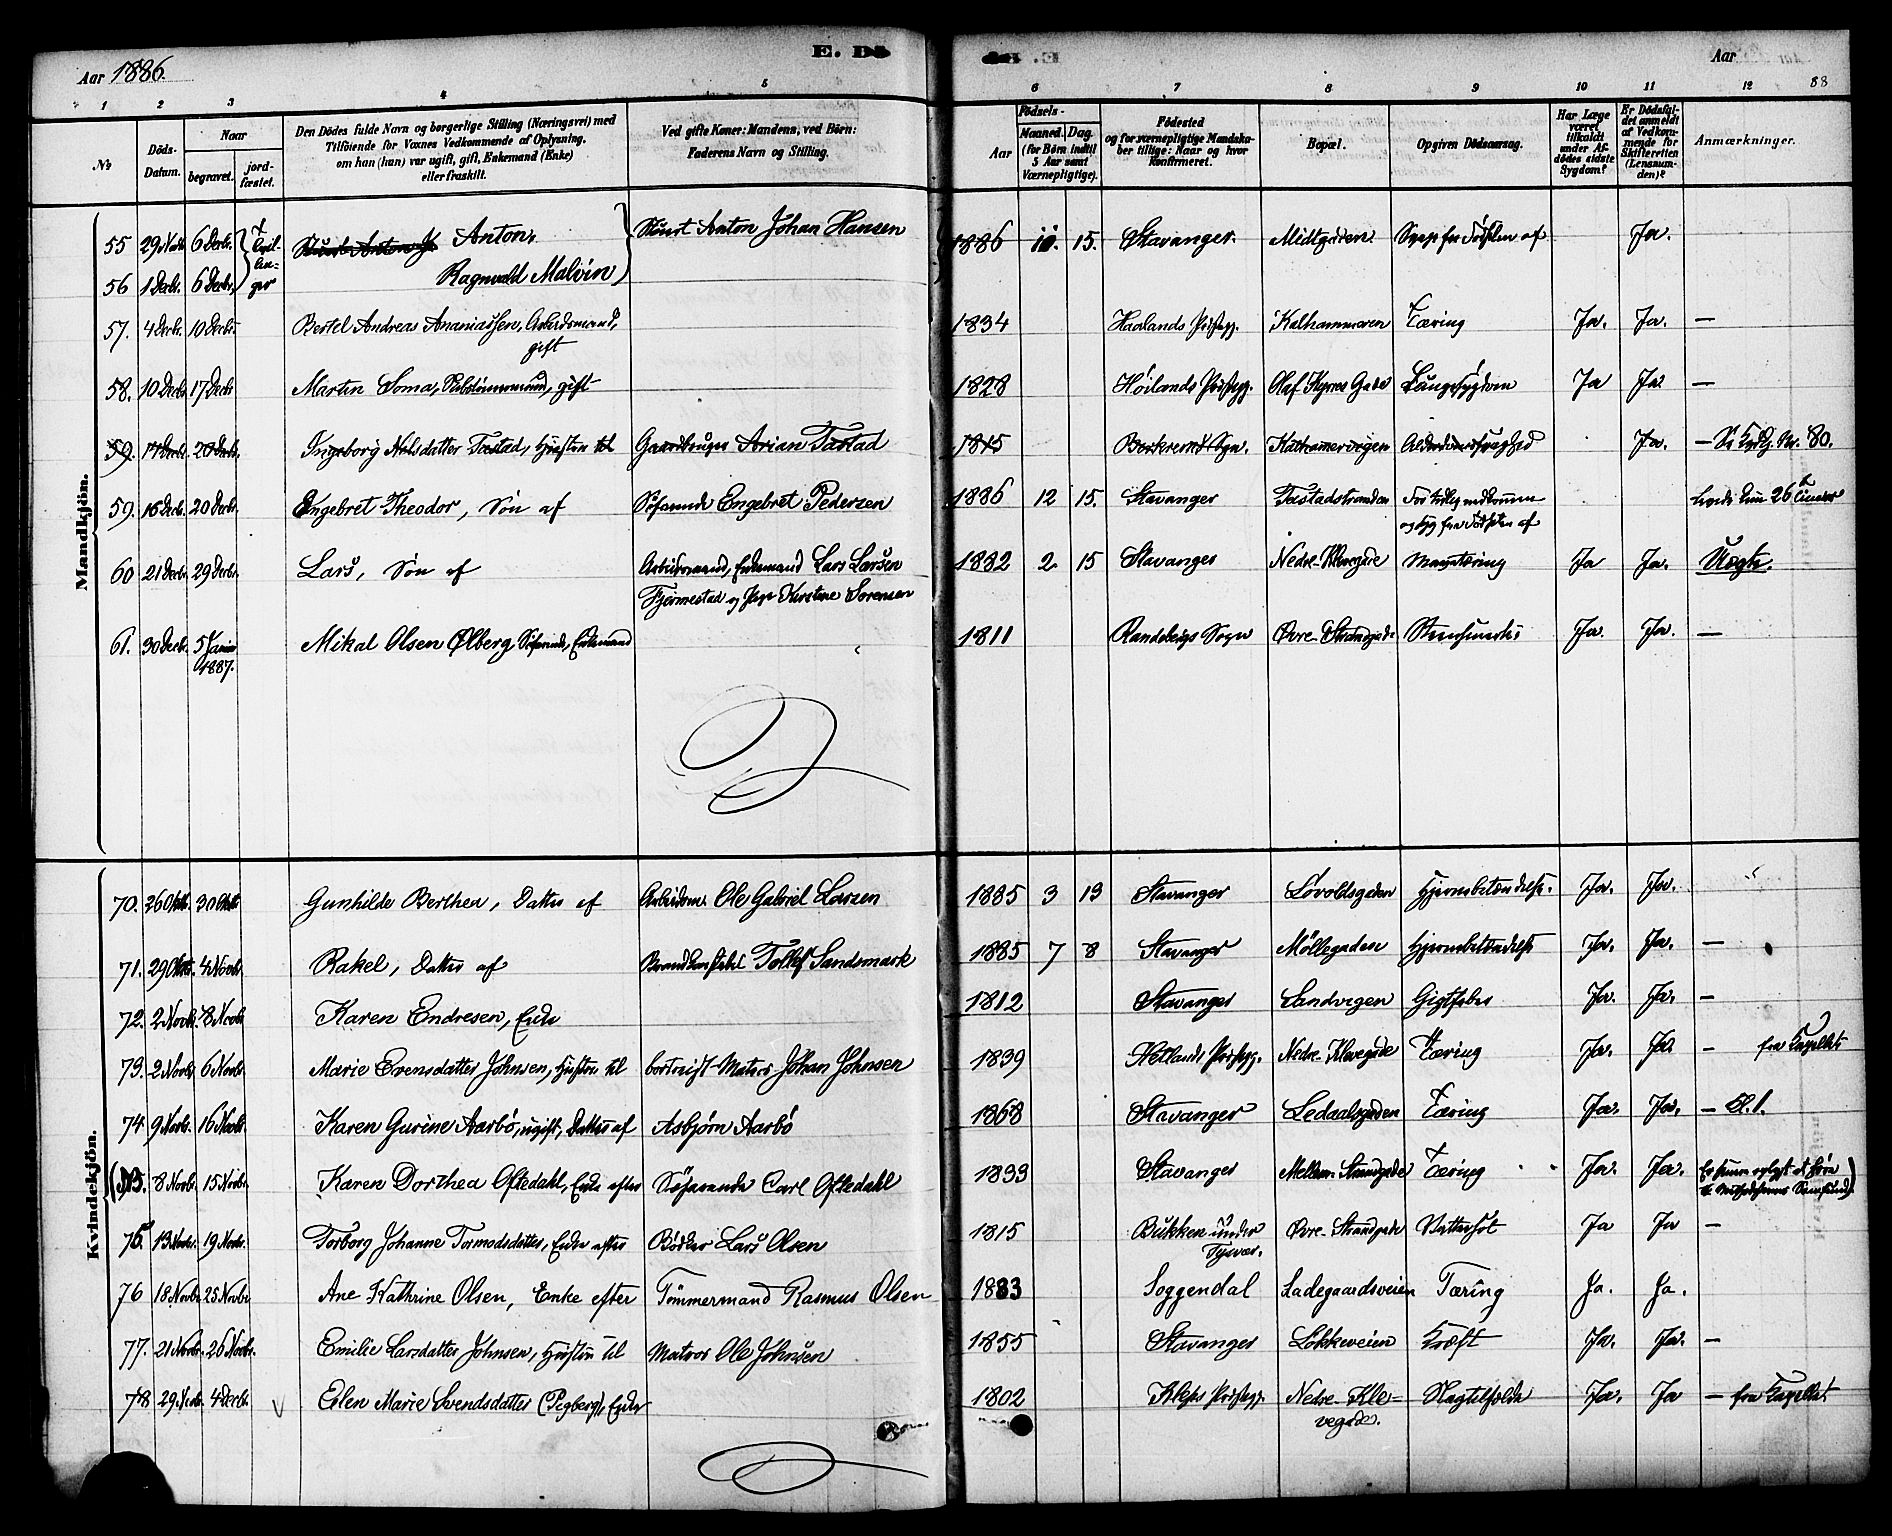 Aar 1886.
E. Dö
E.
Aar
88
1 2 3 4 5 6 7 8 9 10 11 12
No
Döds-Datum.
Naar
begravet.
jord-fæstet.
Den Dödes fulde Navn og borgerlige Stilling (Næringsvei) med
Tilföiende for Voxnes Vedkommende af Oplysning.
om han (hun) var ugift, gift, Enkemand (Enke)
eller fraskilt.
Ved gifte Koner: Mandens, ved Börn:
Faderens Navn og Stilling.
Födsels-
Aar
Maaned. Dag.
(for Börn indtil
5 Aar samt
Værnepligtige).
Födested
og for værnepligtige Mandska-
ber tillige: Naar og hvor
konfirmeret.
Bopæl.
Opgiven Dödsaarsag.
Har Læge
været
tilkaldt
under Af-
dödes sidste
Sygdom?
Er Dödsfal-
det anmeldt
af Vedkom-
mende for
Skifteretten
(Lensman-
den)?
Anmærkninger.
Mandkjön.
55 29 Novb. 6 Decbr. Anton, Anton Johan Hansen 1886 11. 15. Stavanger. Midtgaden Svag fra Födselen af Ja.
56 1 Decbr. 6 Decbr. Ragnvald Malvin
57. 4 Decbr. 10 Decbr. Bertel Andreas Ananiassen, Arbeidsmand, gift 1834 Haalands Præstegj. Kalhammeren Tæring Ja. Ja. —
58. 10 Decbr. 17 Decbr. Martin Soma, gift 1828 Höilands Præstegj. Olaf Kyrres Gade Lungesygdom Ja Ja. —
59. 17 Decbr. 20 Decbr. Ingeborg Nilsdatter Tastad, Hustru til Gaardbruger Arian Tastad 1815 Sogn. Kalhamervigen Alderdomssvaghed Ja. — No. 80.
59. 16 Decbr. 20 Decbr. Engebret Theodor, Sön af Söfarende Engebret Pedersen 1886 12 15. Stavanger Tastadstranden For tidlig
og svag fra Födselen af 26
60 21 Decbr. 29 Decbr. Lars, Sön af Arbeidsmand, Enkemand Lars Larsen
Fjermestad og Kirstine Sörensen 1882 2. 15 Stavanger Nedre Klevegade Mavetæring Ja Ja. Uægte.
61. 30 Decbr. 5 Januar
1887. Mikal Olsen Ølberg, Enkemand 1811 Randebergs Sogn Övre-Strandgade Ja. Ja. —
Kvindekjön.
70. 26 Oktb. 30 Oktb Gunhilde Berthea, Datter af Arbeidsm. Ole Gabriel Larsen 1885 3 13 Stavanger Lövoldsgaden Hjernebetændelse. Ja. Ja.
71. 29 Oktb. 4 Novb. Rakel, Datter af Brandkonstabel Tollef Sandsmark 1885 7 8 Stavanger Möllegaden Hjernebetændelse Ja. Ja. —
72. 2 Novb. 8 Novb Karen Endresen, Enke 1812 Stavanger Sandvigen Gigtfeber Ja. Ja. —
73. 2 Novb 6 Novb. Marie Evensdatter Johnsen, Hustru til bortreist Matros Johan Johnsen 1839 Hetlands Præstegj. Nedre-Klevegade Tæring Ja. Ja. — fra Kapellet
74. 9 Novb. 16 Novb. Karen Gurine Aarbö, ugift, Datter af Asbjörn Aarbö 1868 Stavanger Ledaalsgaden Tæring Ja. Ja. —
8 Novb. 15 Novb. Karen Dorthea Oftedahl, Enke efter Söfarende Carl Oftedahl 1833 Stavanger Mellem-Strandgade Tæring Ja. Ja.
75. 13 Novbr. 19 Novb. Torborg Johanne Tormodsdatter, Enke efter Bödker Lars Olsen 1815 Bukken under
Tysvær. Övre-Strandgade Vattersot Ja Ja —
76 18. Novbr. 25 Novbr Ane Kathrine Olsen, Enke efter Tömmermand Rasmus Olsen 1833 Soggendal Ladegaardsveien Tæring Ja. Ja.
77. 21 Novbr. 26 Novbr. Emilie Larsdatter Johnsen, Hustru til Matros Ole Johnsen 1855 Stavanger Lökkeveien Kræft Ja. Ja. —
78 29. Novb. 4 Decbr. Elen Marie Svendsdatter (Pegberg), Enke 1802 Kleps Præstegj. Nedre-Kle-
vegade. Slagtilfælde Ja. Ja — fra Kapellet